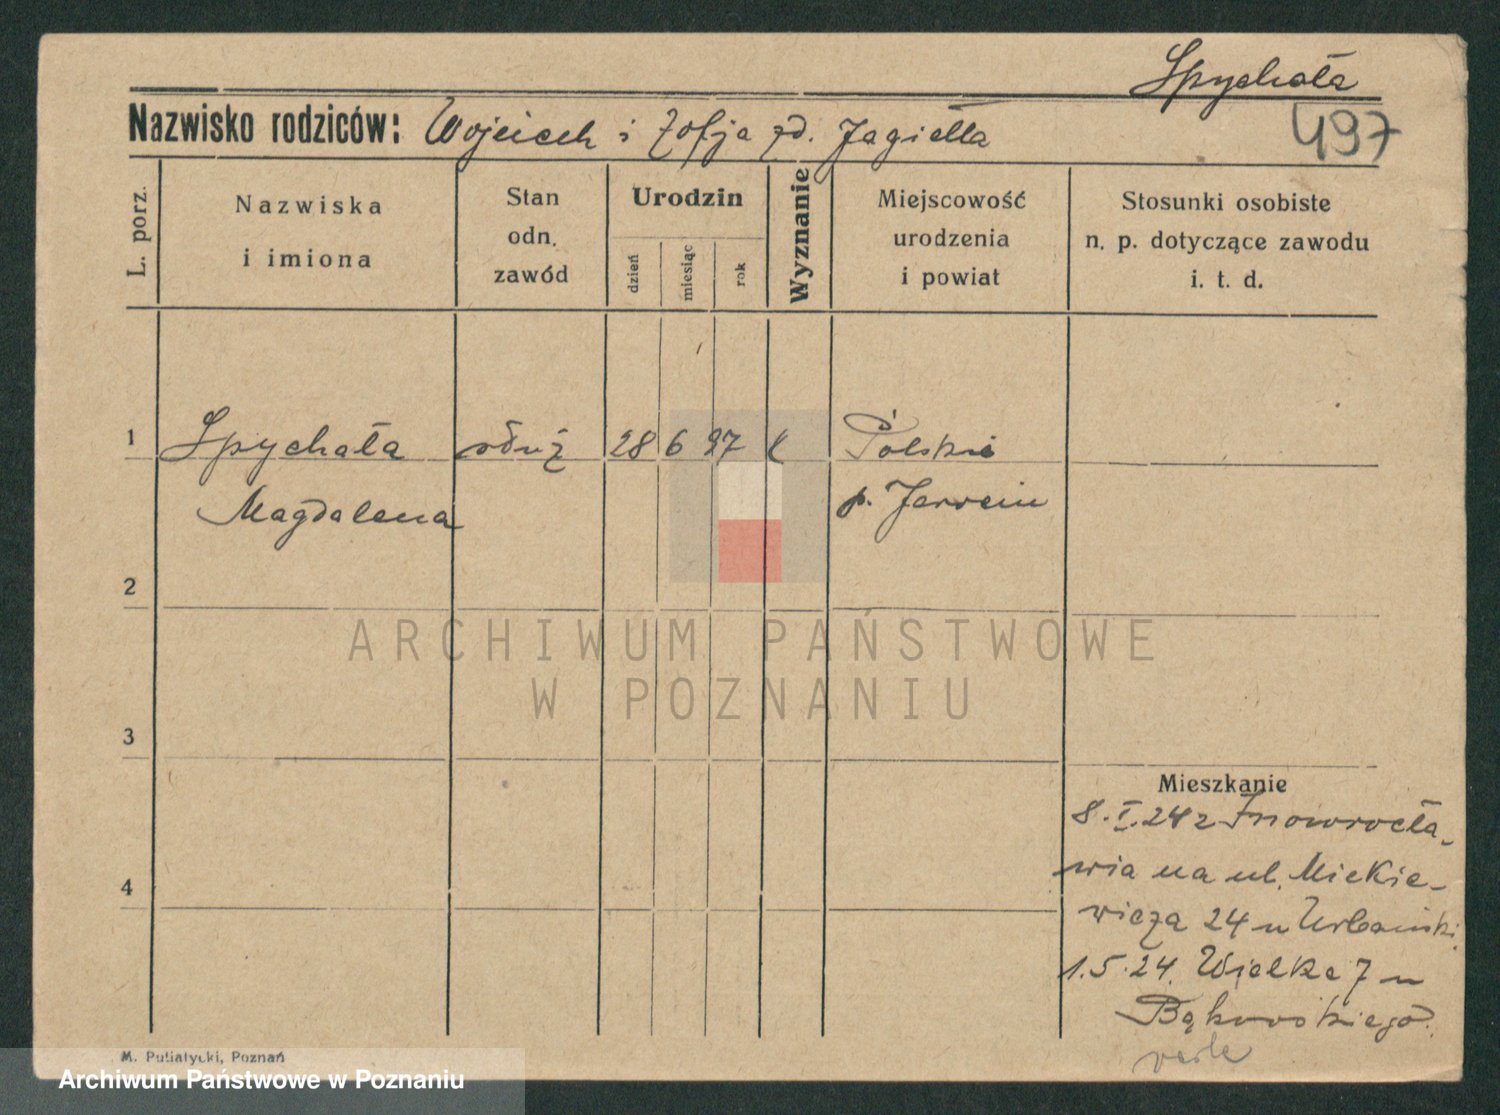 Spychała
Nazwisko rodziców: Wojciech i Zofja zd. Jagiełła
497
L. porz.
Nazwiska
i imiona
Stan
odn.
zawód
Urodzin
dzień
miesiąc
rok
Wyznanie
Miejscowość
urodzenia
i powiat
Stosunki osobiste
n. p. dotyczące zawodu
i. t. d.
1 Spychała służ 28 6 97 k Polskie
Magdalena p.
2
3
4
ARCHIWUM PAŃSTWOWE
W POZNANIU
Mieszkanie
8.I.24 z Inowrocła-
wia na ul. Mickie-
wicza 24 u
1.5.24. Wielka 7 u
Bąkowskiego.
M. Putiatycki, Poznań
Archiwum Państwowe w Poznaniu